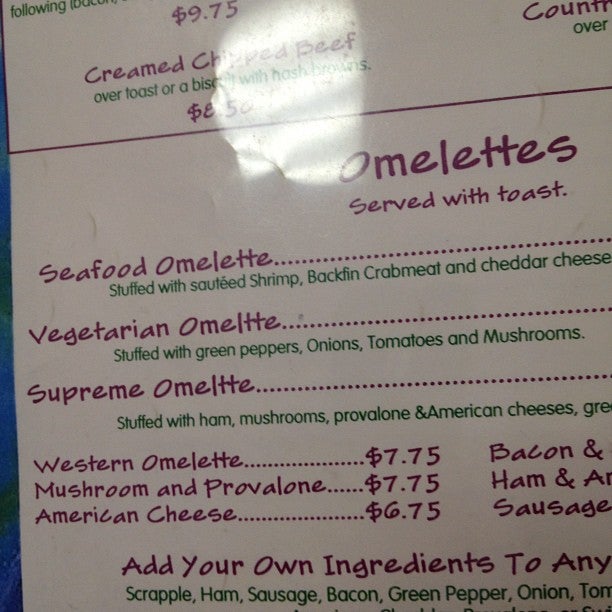 following (bacon,
$9.75
Creamed Chipped Beef
over toast or a biscuit with hash browns.
$8.50
Count
over
Omelettes
Served with toast.
Seafood Omelette......................................................
Stuffed with sautéed Shrimp, Backfin Crabmeat and cheddar cheese
Vegetarian Omeltte......................................................
Stuffed with green peppers, Onions, Tomatoes and Mushrooms.
Supreme Omeltte......................................................
Stuffed with ham, mushrooms, provalone &American cheeses, gre
Western Omelette....................$7.75 Bacon &
Mushroom and Provalone......$7.75 Ham & Am
American Cheese.....................$6.75 Sausage
Add Your Own Ingredients To Any
Scrapple, Ham, Sausage, Bacon, Green Pepper, Onion, Tom